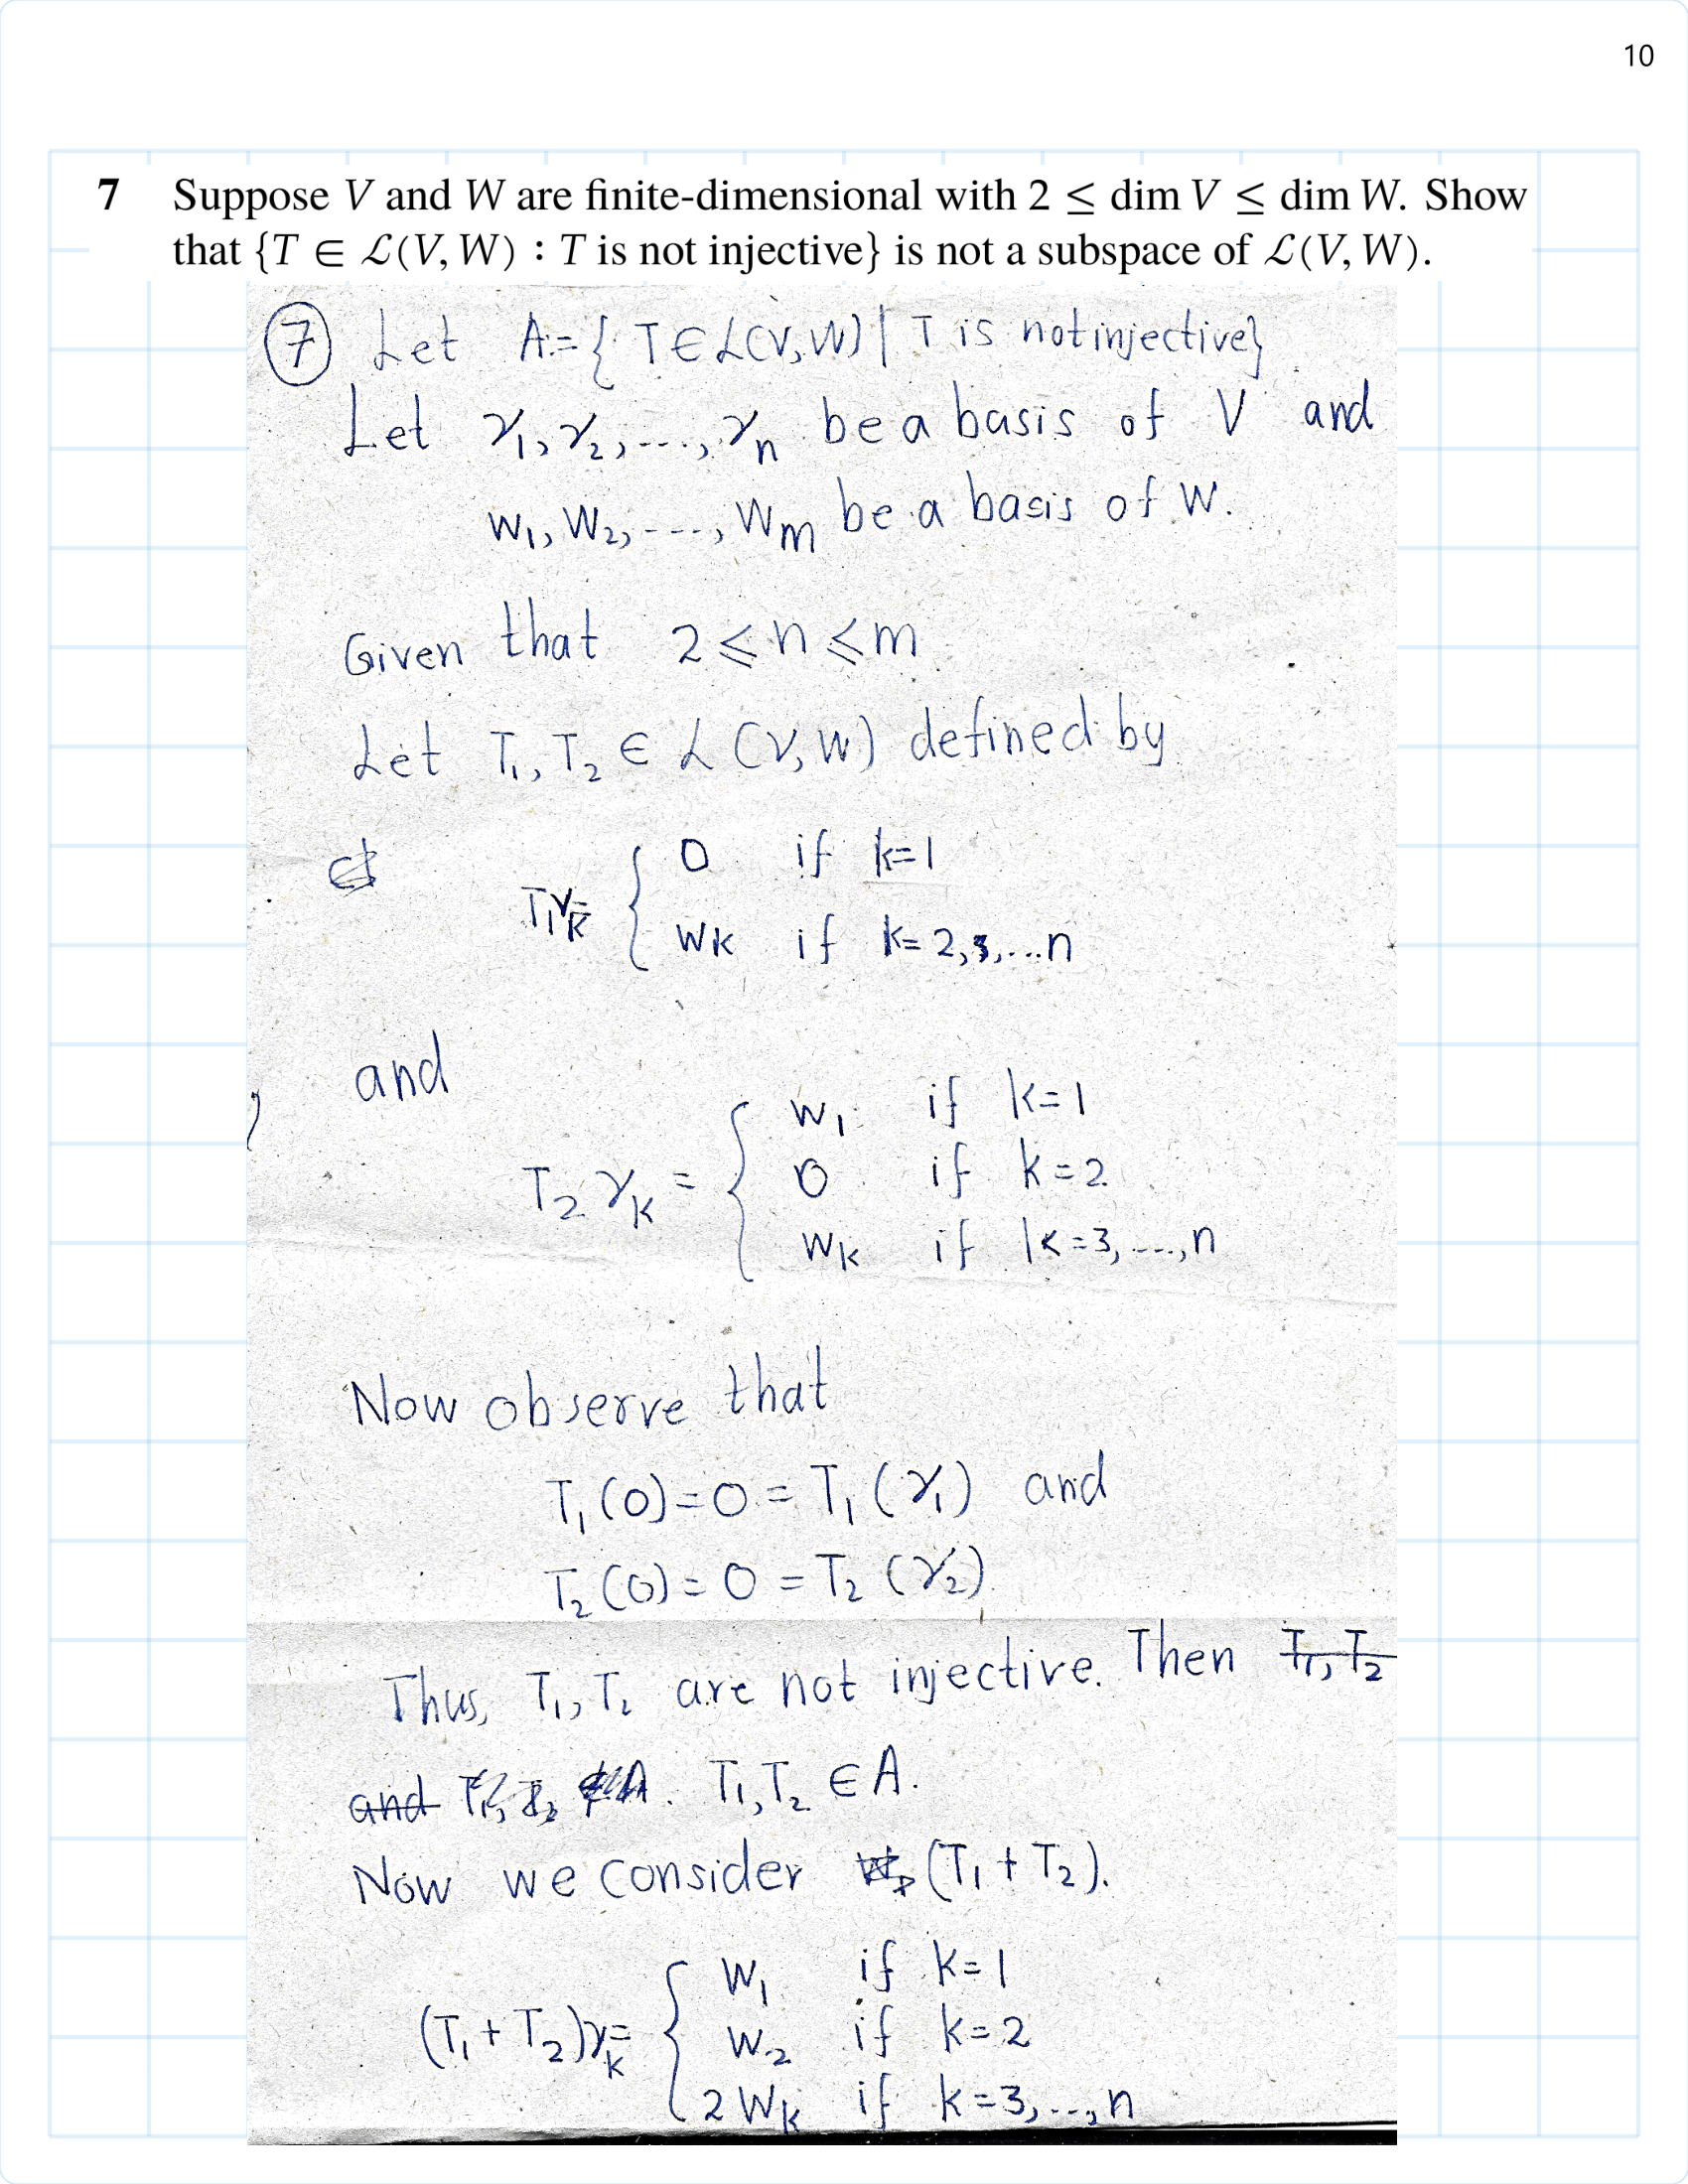 10
7 Suppose V and W are finite-dimensional with 2 ≤ dim V ≤ dim W. Show
that {T ∈ ℒ(V, W) : T is not injective} is not a subspace of ℒ(V, W).
⑦ Let A:={ T∈ℒ(V,W) | T is not injective}
Let v₁, v₂, ..., vₙ be a basis of V and
w₁, w₂, ---, wₘ be a basis of W.
Given that 2 ⩽ n ⩽ m
Let T₁, T₂ ∈ ℒ(V,W) defined by
T₁vₖ= { 0 if k=1
wₖ if k=2,3,...n
and
T₂vₖ = { w₁ if k=1
0 if k=2
wₖ if k=3, ...,n
Now observe that
T₁(0)=0=T₁(v₁) and
T₂(0)=0=T₂(v₂)
Thus, T₁, T₂ are not injective. Then T₁, T₂
and T₁, T₂ ∉A. T₁,T₂ ∈A.
Now we consider (T₁+T₂).
(T₁+T₂)vₖ= { w₁ if k=1
w₂ if k=2
2wₖ if k=3,...,n